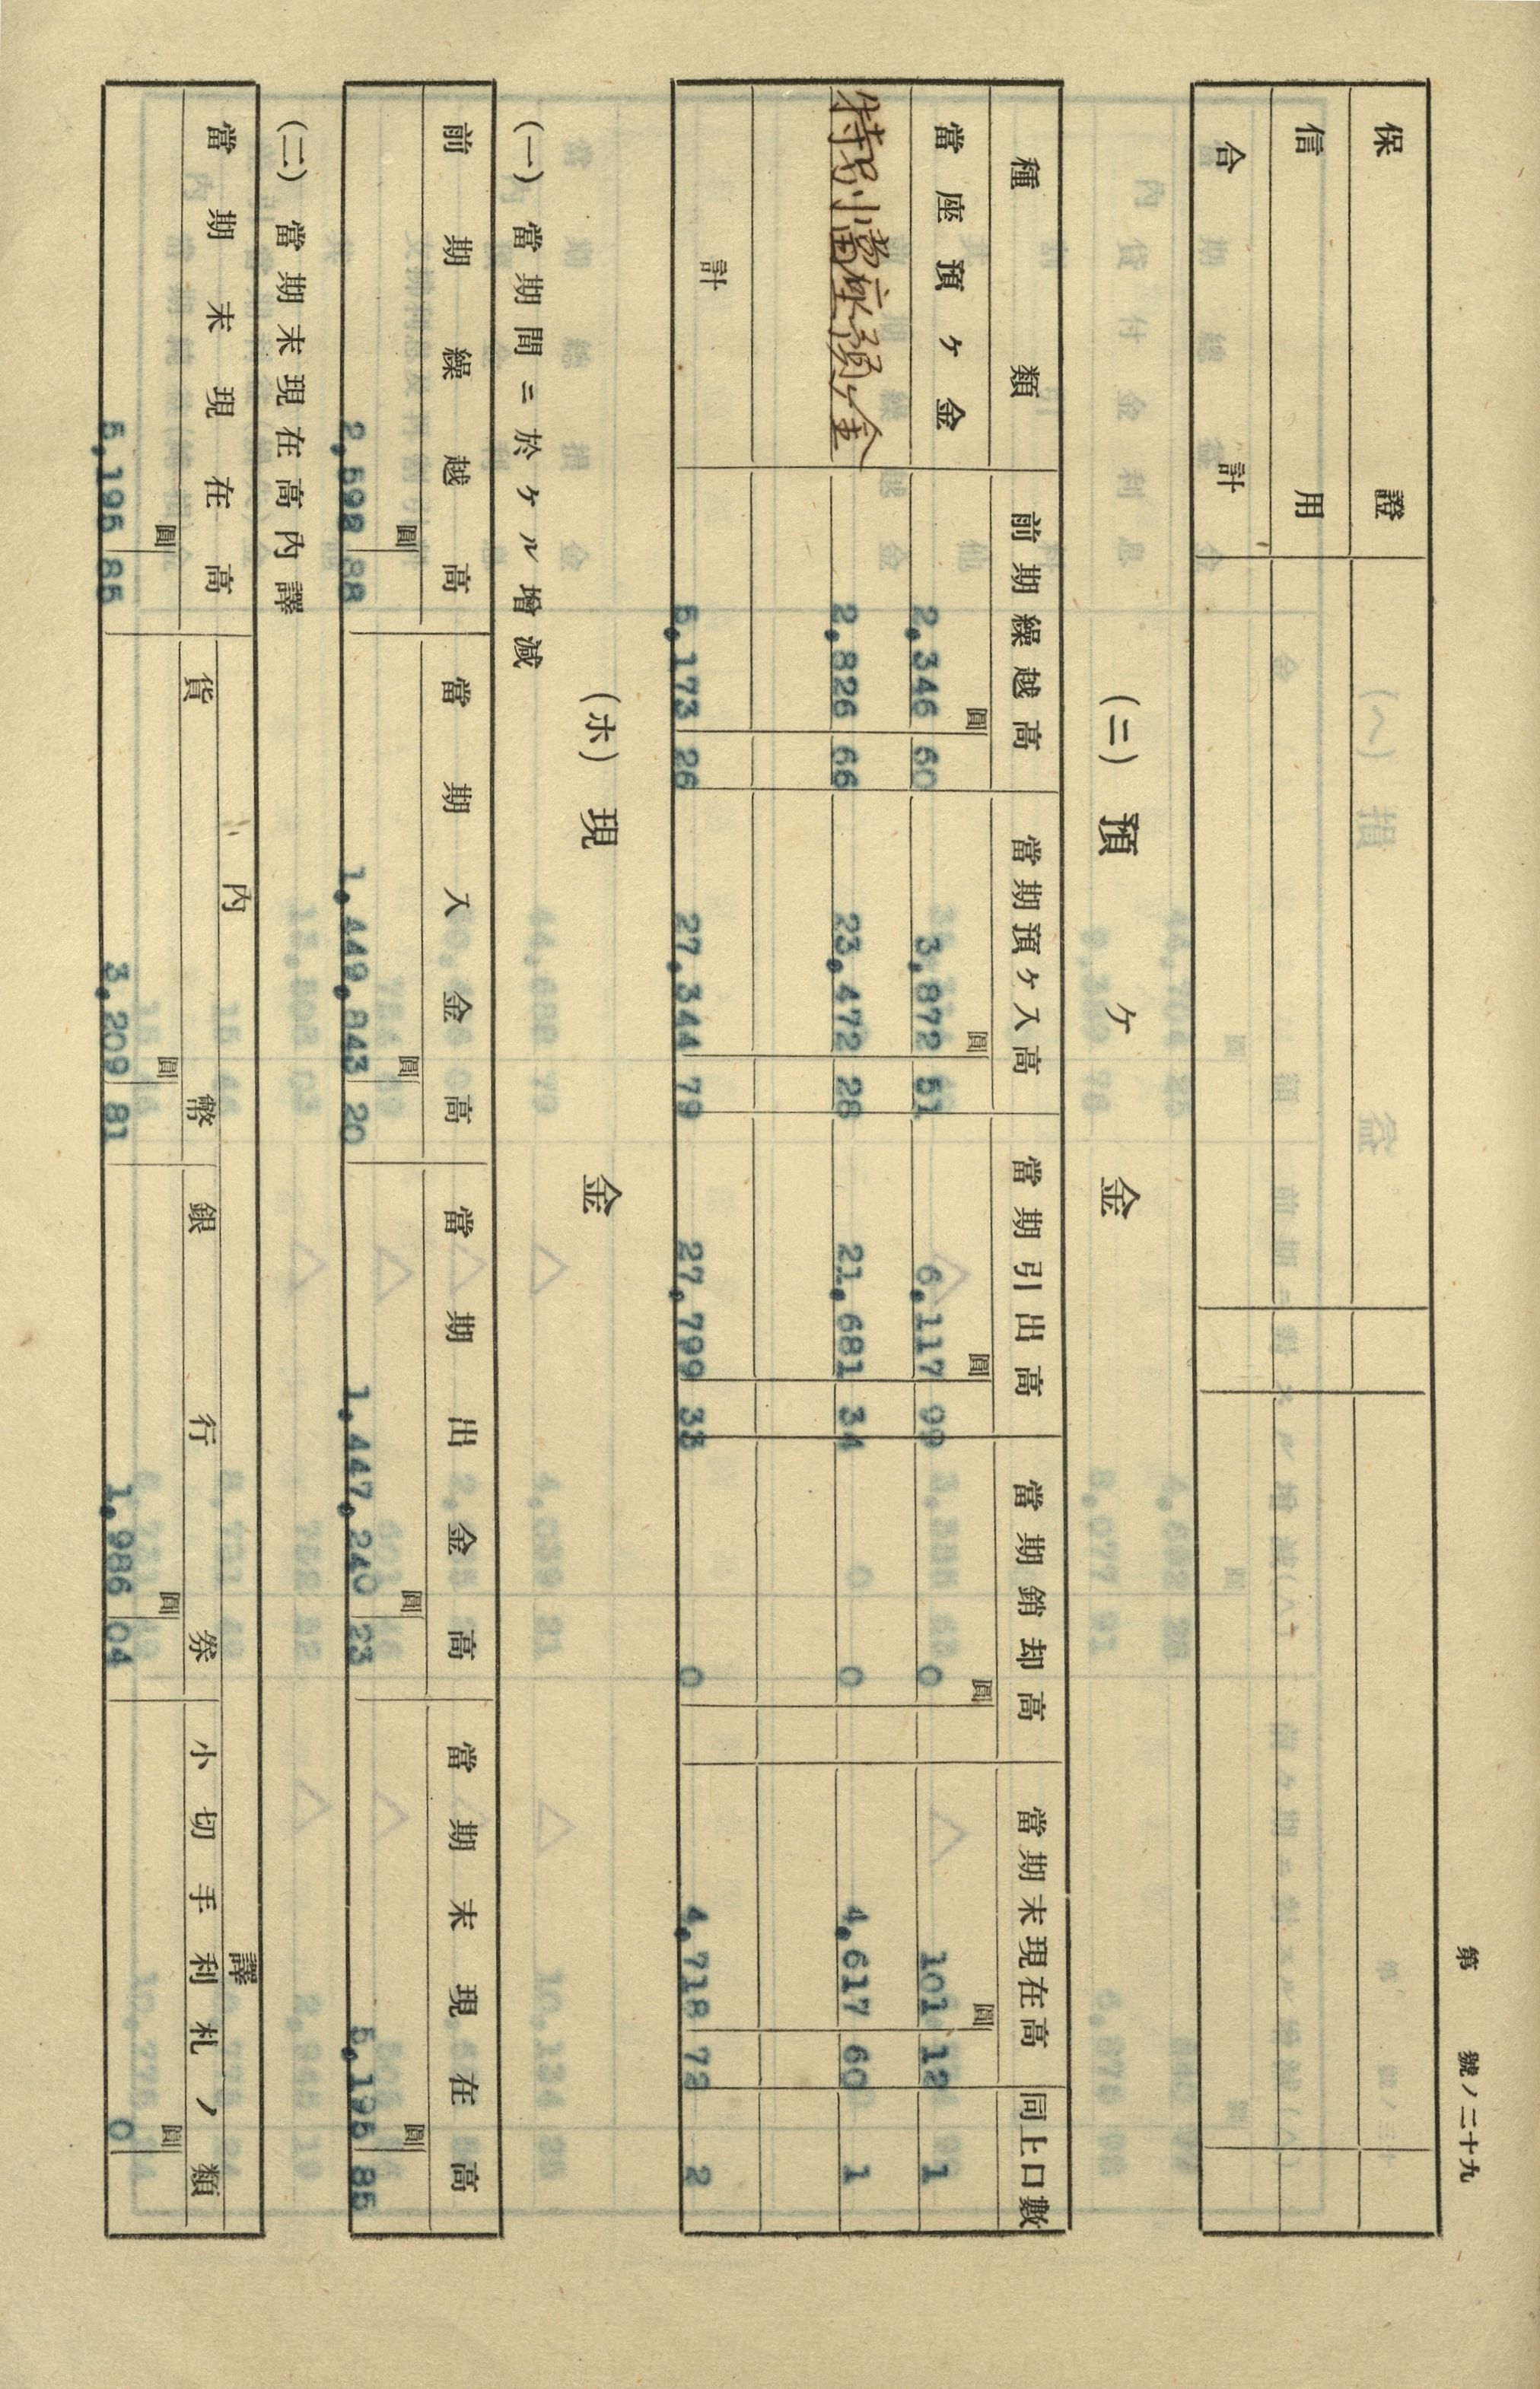 第 號ノ二十九
保證
信用
合計
(ニ) 預ケ金
種類 前期繰越高 當期預ケ入高 當期引出高 當期銷却高 當期末現在高 同上口數
圓 圓 圓 圓 圓
當座預ケ金 2,346 60 3,872 51 6,117 99 0 101 12 1
特別當座預ケ金 2,826 66 23,472 28 21,681 34 0 4,617 60 1
計 5,173 26 27,344 79 27,799 33 0 4,718 72 2
(ホ) 現金
(一) 當期間ニ於ケル增減
前期繰越高 當期入金高 當期出金高 當期末現在高
圓 圓 圓 圓
2,592 88 1,449,843 20 1,447,240 23 5,195 85
(二) 當期末現在高內譯
當期末現在高 內譯
貨幣 銀行券 小切手利札ノ類
圓 圓 圓 圓
5,195 85 3,209 81 1,986 04 0